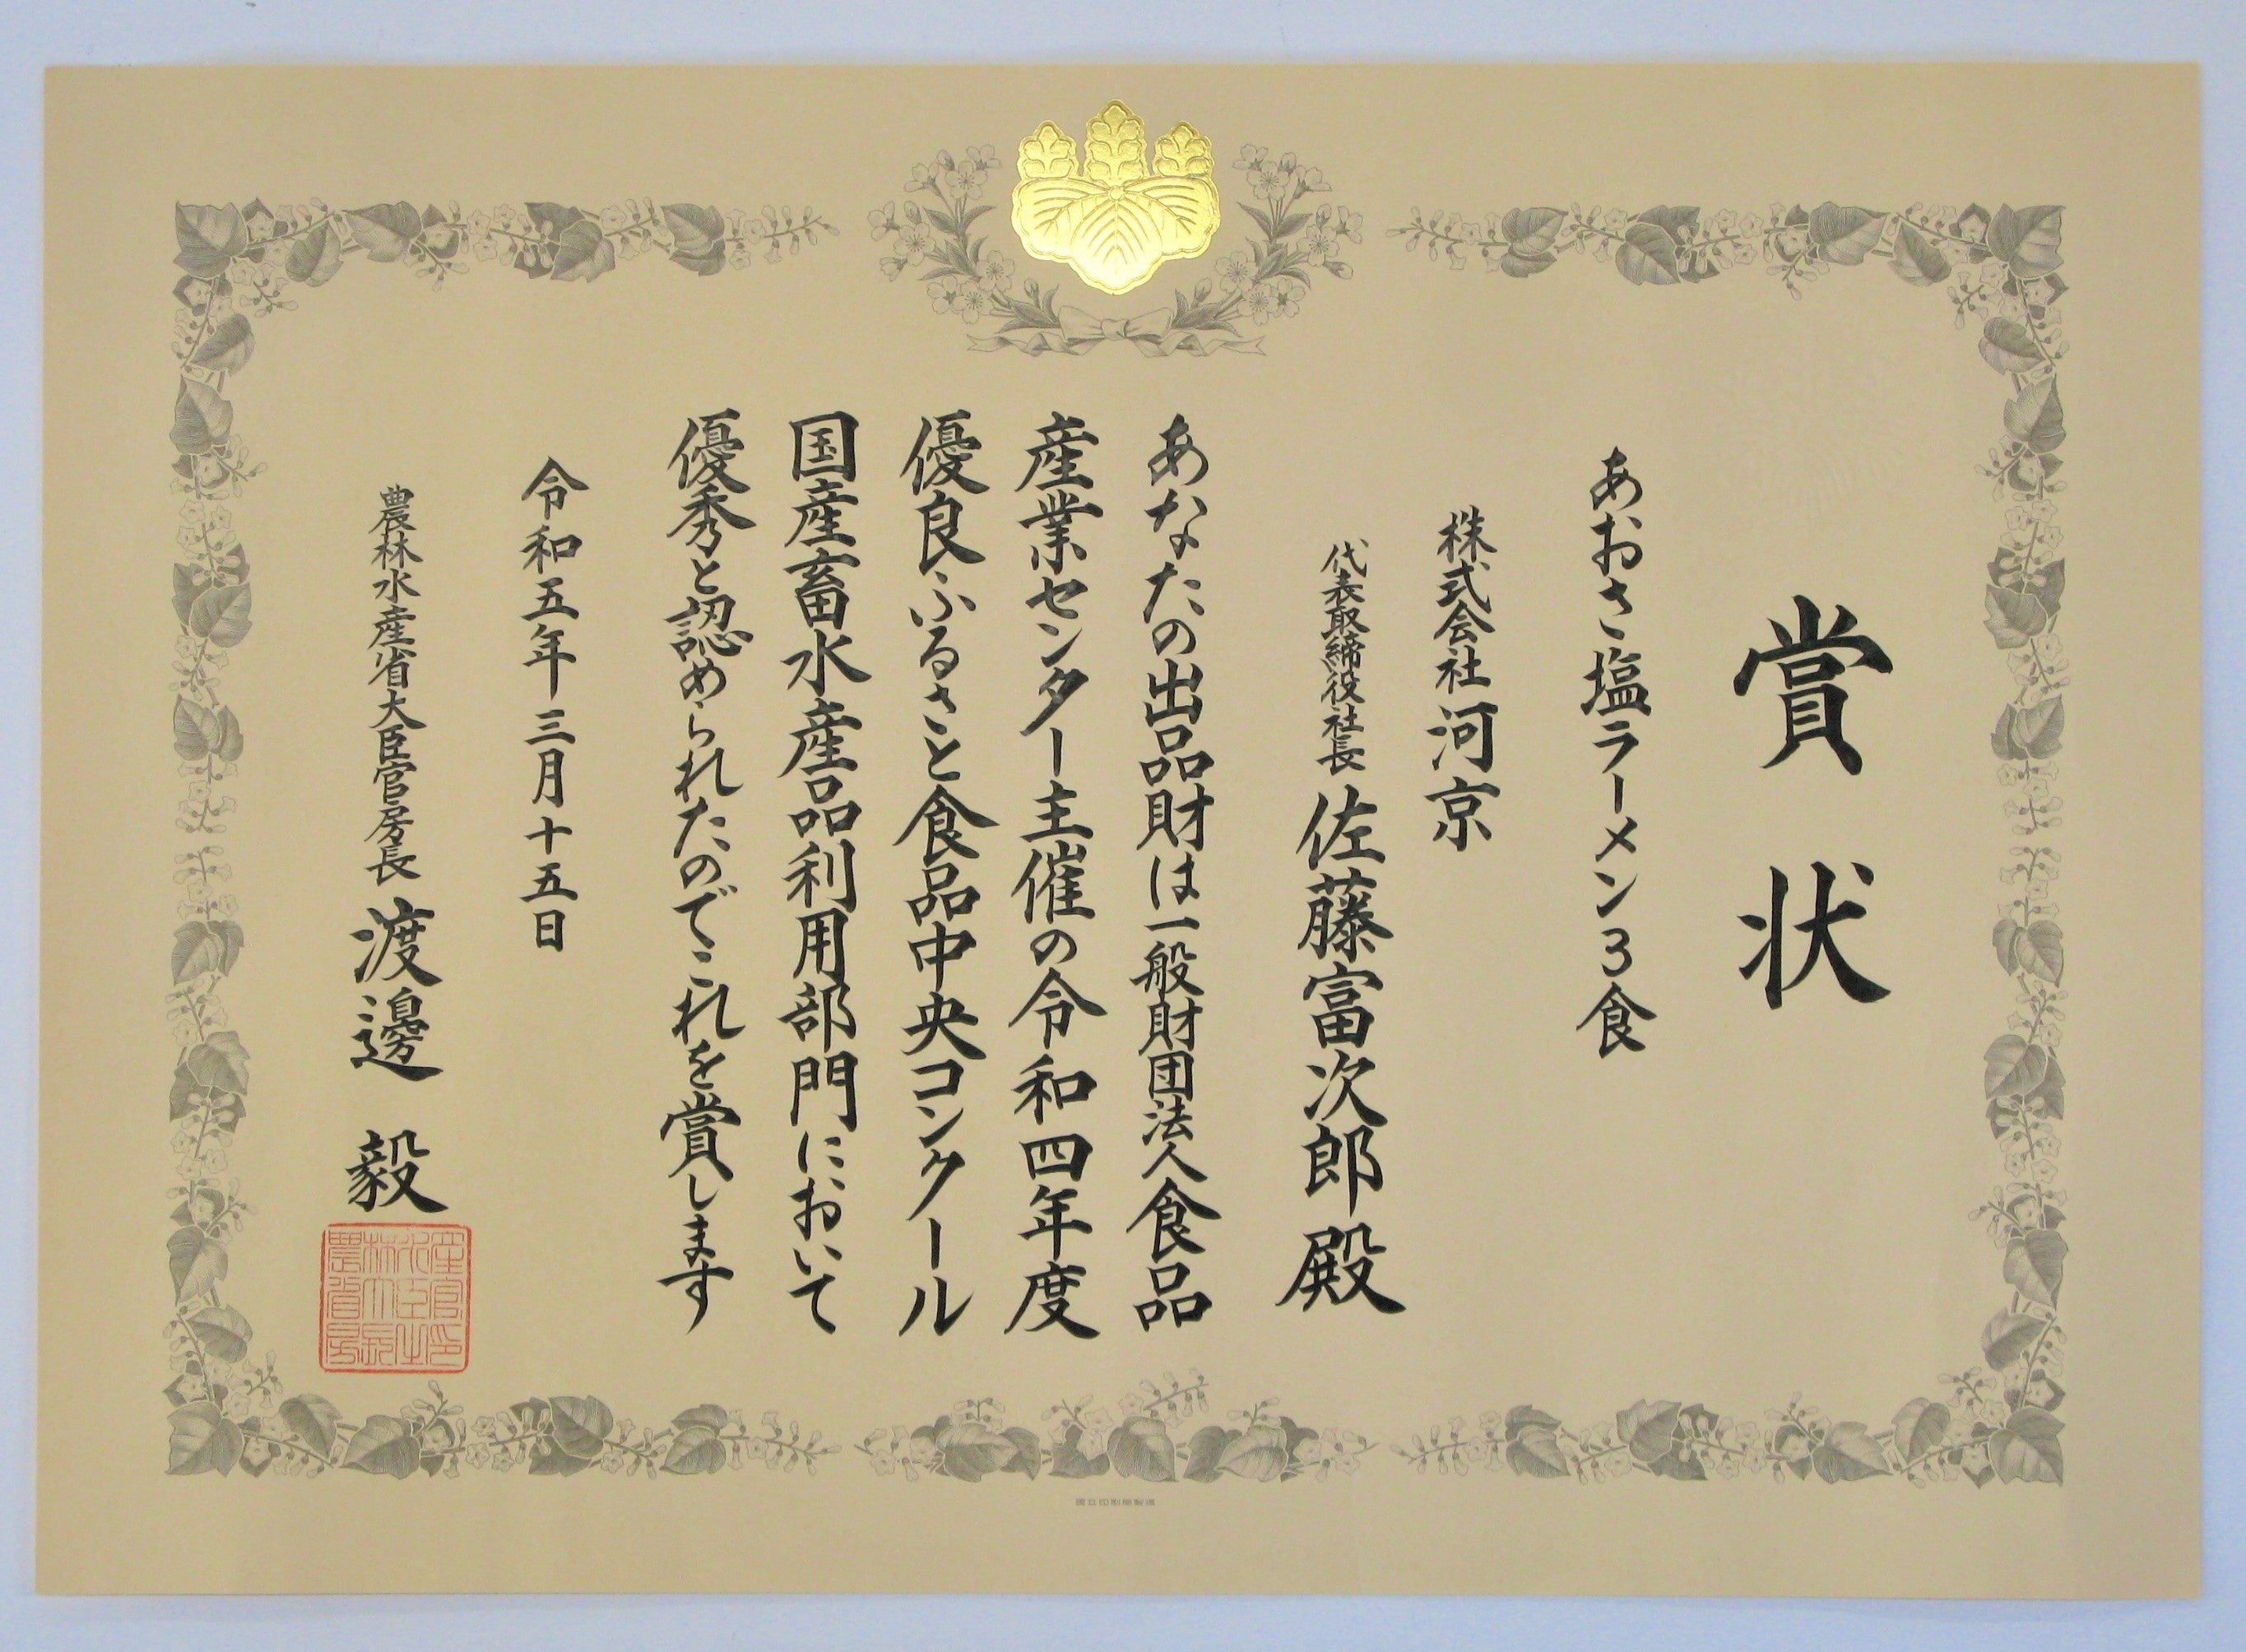 賞状
あおさ塩ラーメン３食
株式会社河京
代表取締役社長 佐藤富次郎殿
あなたの出品財は一般財団法人食品
産業センター主催の令和四年度
優良ふるさと食品中央コンクール
国産畜水産品利用部門において
優秀と認められたのでこれを賞します
令和五年三月十五日
農林水産省大臣官房長 渡邊 毅